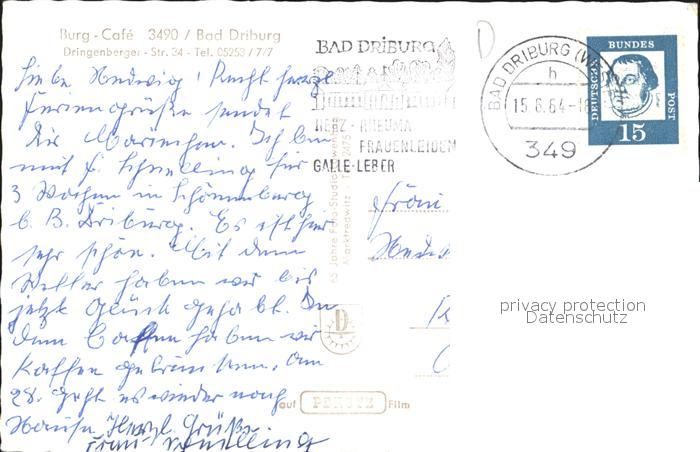 Burg-Café 3490 / Bad Driburg
Dringenberger-Str. 34 - Tel. 05253 / 7/7
Liebe Hedwig! Recht herzl.
Feriengrüße sendet
Dir Mariechen. Ich bin
mit F. Schnelling für
3 Wochen in Schönenberg
b. B. Driburg. Es ist hier
sehr schön. Mit dem
Wetter haben wir bis
jetzt Glück gehabt. In
dem Caffee haben wir
Kaffee getrunken. Am
28. geht es wieder nach
Hause. Herzl. Grüße
Frau Schnelling
BAD DRIBURG
HERZ - RHEUMA
FRAUENLEIDEN
GALLE-LEBER
BAD DRIBURG (WESTF)
h
15.8.64-18
349
DEUTSCHE
BUNDES
POST
15
65 Jahre Foto-Studio
Marktredwitz
Fräul
Hedw
auf PERUTZ Film
privacy protection
Datenschutz